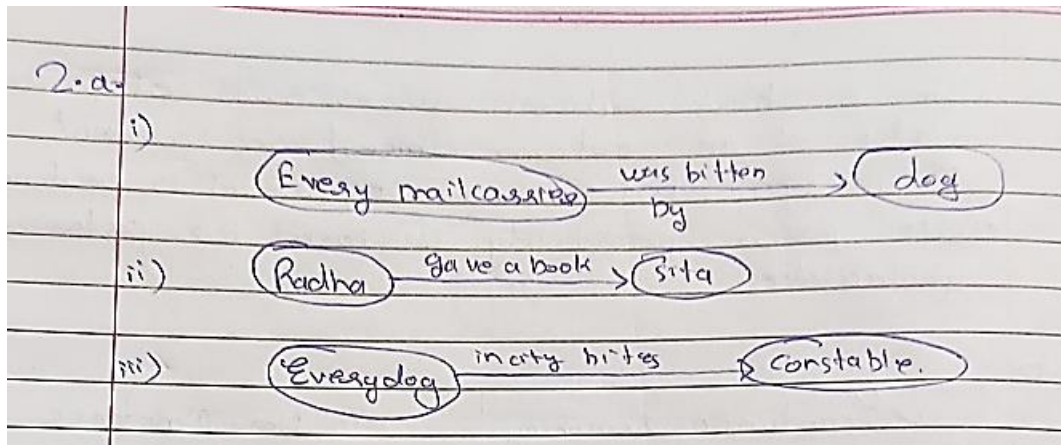 2.a.
i)
Every mailcarrier was bitten by dog
ii) Radha gave a book Sita
iii) Everydog in city bites Constable.